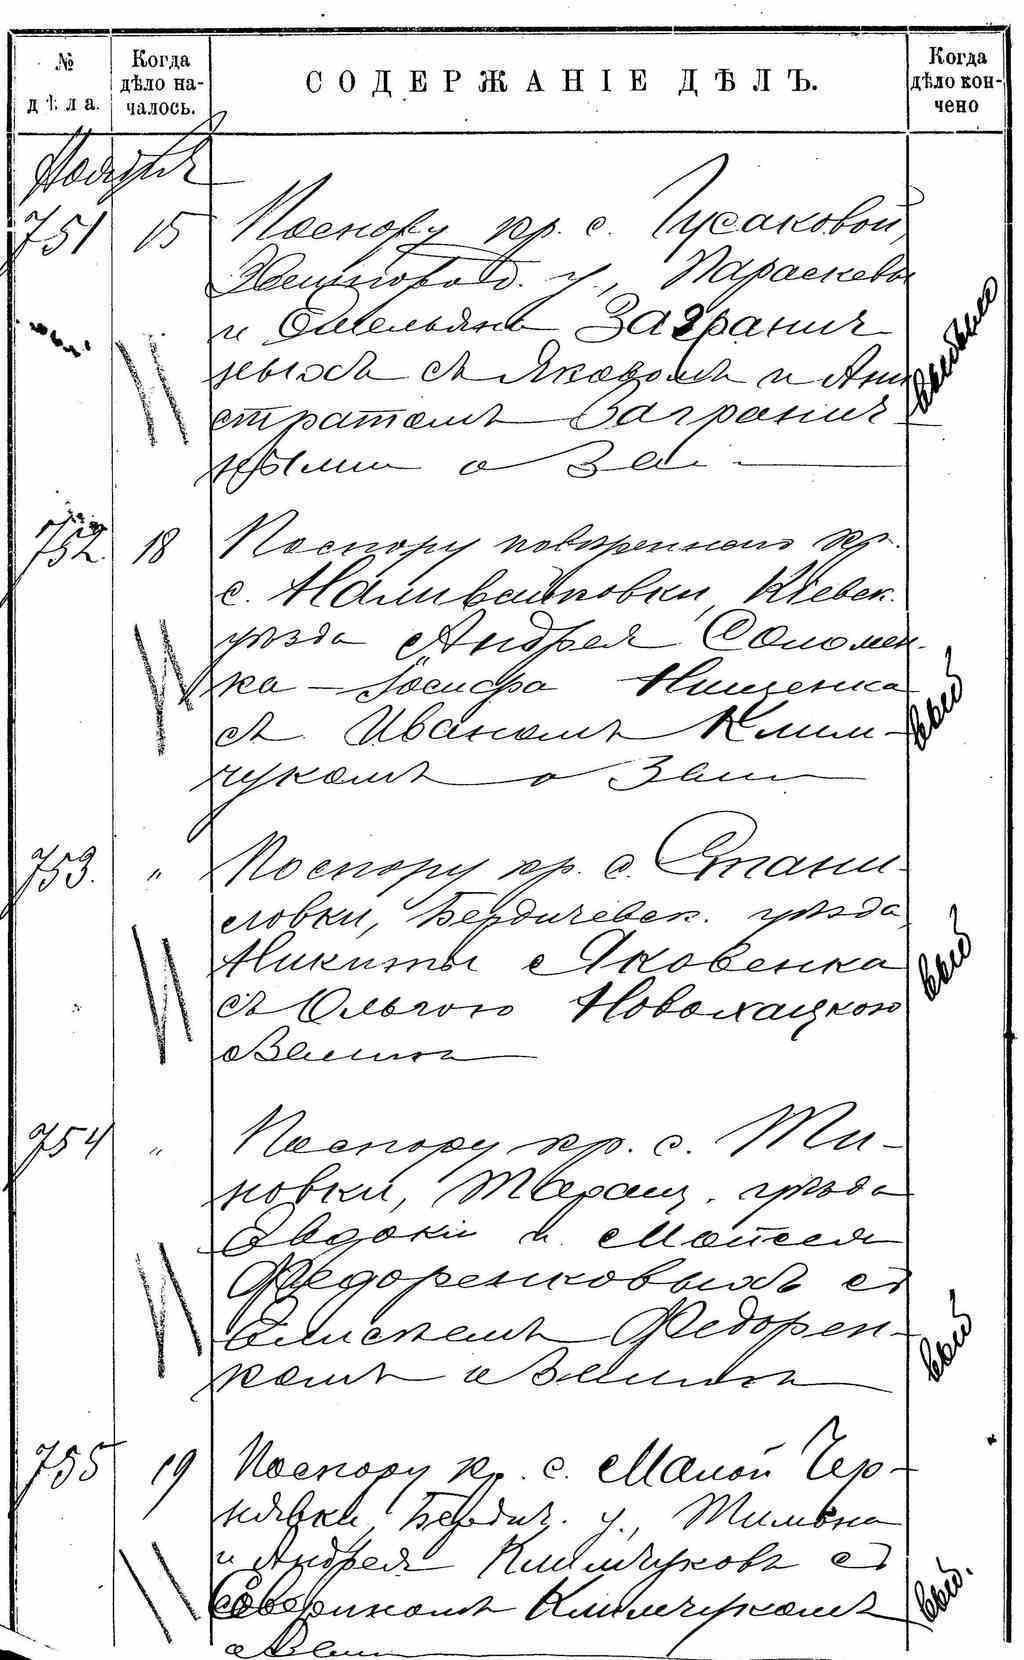 № дѣла.
Когда дѣло началось.
СОДЕРЖАНІЕ ДѢЛЪ.
Когда дѣло кончено
751 15 По спору кр. с. Гусаковой,
у., Параскевы
и Омельяна Загранич
ныхъ съ Яковомъ и Ани
стратомъ Загранич
ными о Зем.
выбыло
752. 18 По спору повѣреннаго кр.
с. Наливайковки, Кіевск.
уѣзда Андрея Соломен-
ка - Іосифа Нищенка
съ Иваномъ Клим-
чукомъ о Земл
выб
753. " По спору кр. с. Стани-
ловки, Бердичевск. уѣзда,
Никиты Яковенка
съ Ольгою Новохацкою
о Земли
выб
754 " По спору кр. с. Ти-
новки, Таращ. уѣзда
Евдокіи и Моисея
Федоренковыхъ съ
Елисѣемъ Федорен-
комъ о Земли
выб
755 19 По спору кр. с. Малой Чер-
нявки, Бердич. у., Тимоѳа
и Андрея Климчуковъ съ
Севериномъ Климчукомъ
о Земл
выб.